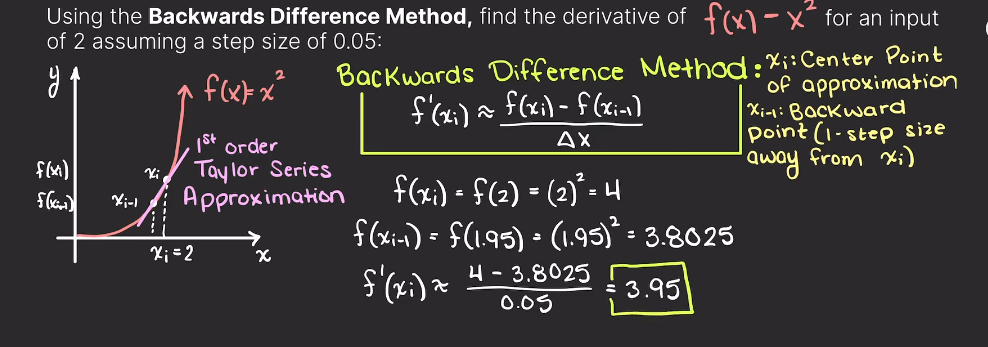 Using the Backwards Difference Method, find the derivative of f(x) - x² for an input
of 2 assuming a step size of 0.05:
y
f(x)=x²
1st order
Taylor Series
Approximation
f(xi)
f(xi-1)
xi
xi-1
xi=2
x
Backwards Difference Method:
f'(xi) ≈ f(xi) - f(xi-1) / Δx
xi: Center Point
of approximation
xi-1: Backward
point (1-step size
away from xi)
f(xi) = f(2) = (2)² = 4
f(xi-1) = f(1.95) = (1.95)² = 3.8025
f'(xi) ≈ 4 - 3.8025 / 0.05 = 3.95